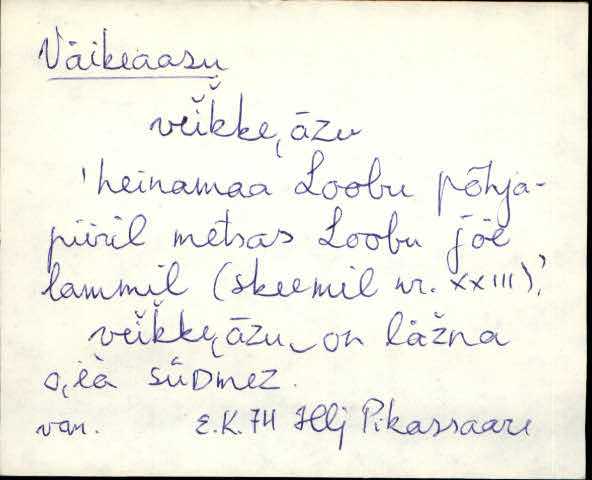 Väikeaasu
veĭk̆ke͔āzu
'heinamaa Loobu põhja-
piiril metsas Loobu jõe
lammil (skeemil nr. XXIII).'
veĭk̆ke͔āzu on läžna
südmez.
van. E.K. 74 Hlj Pikassaare